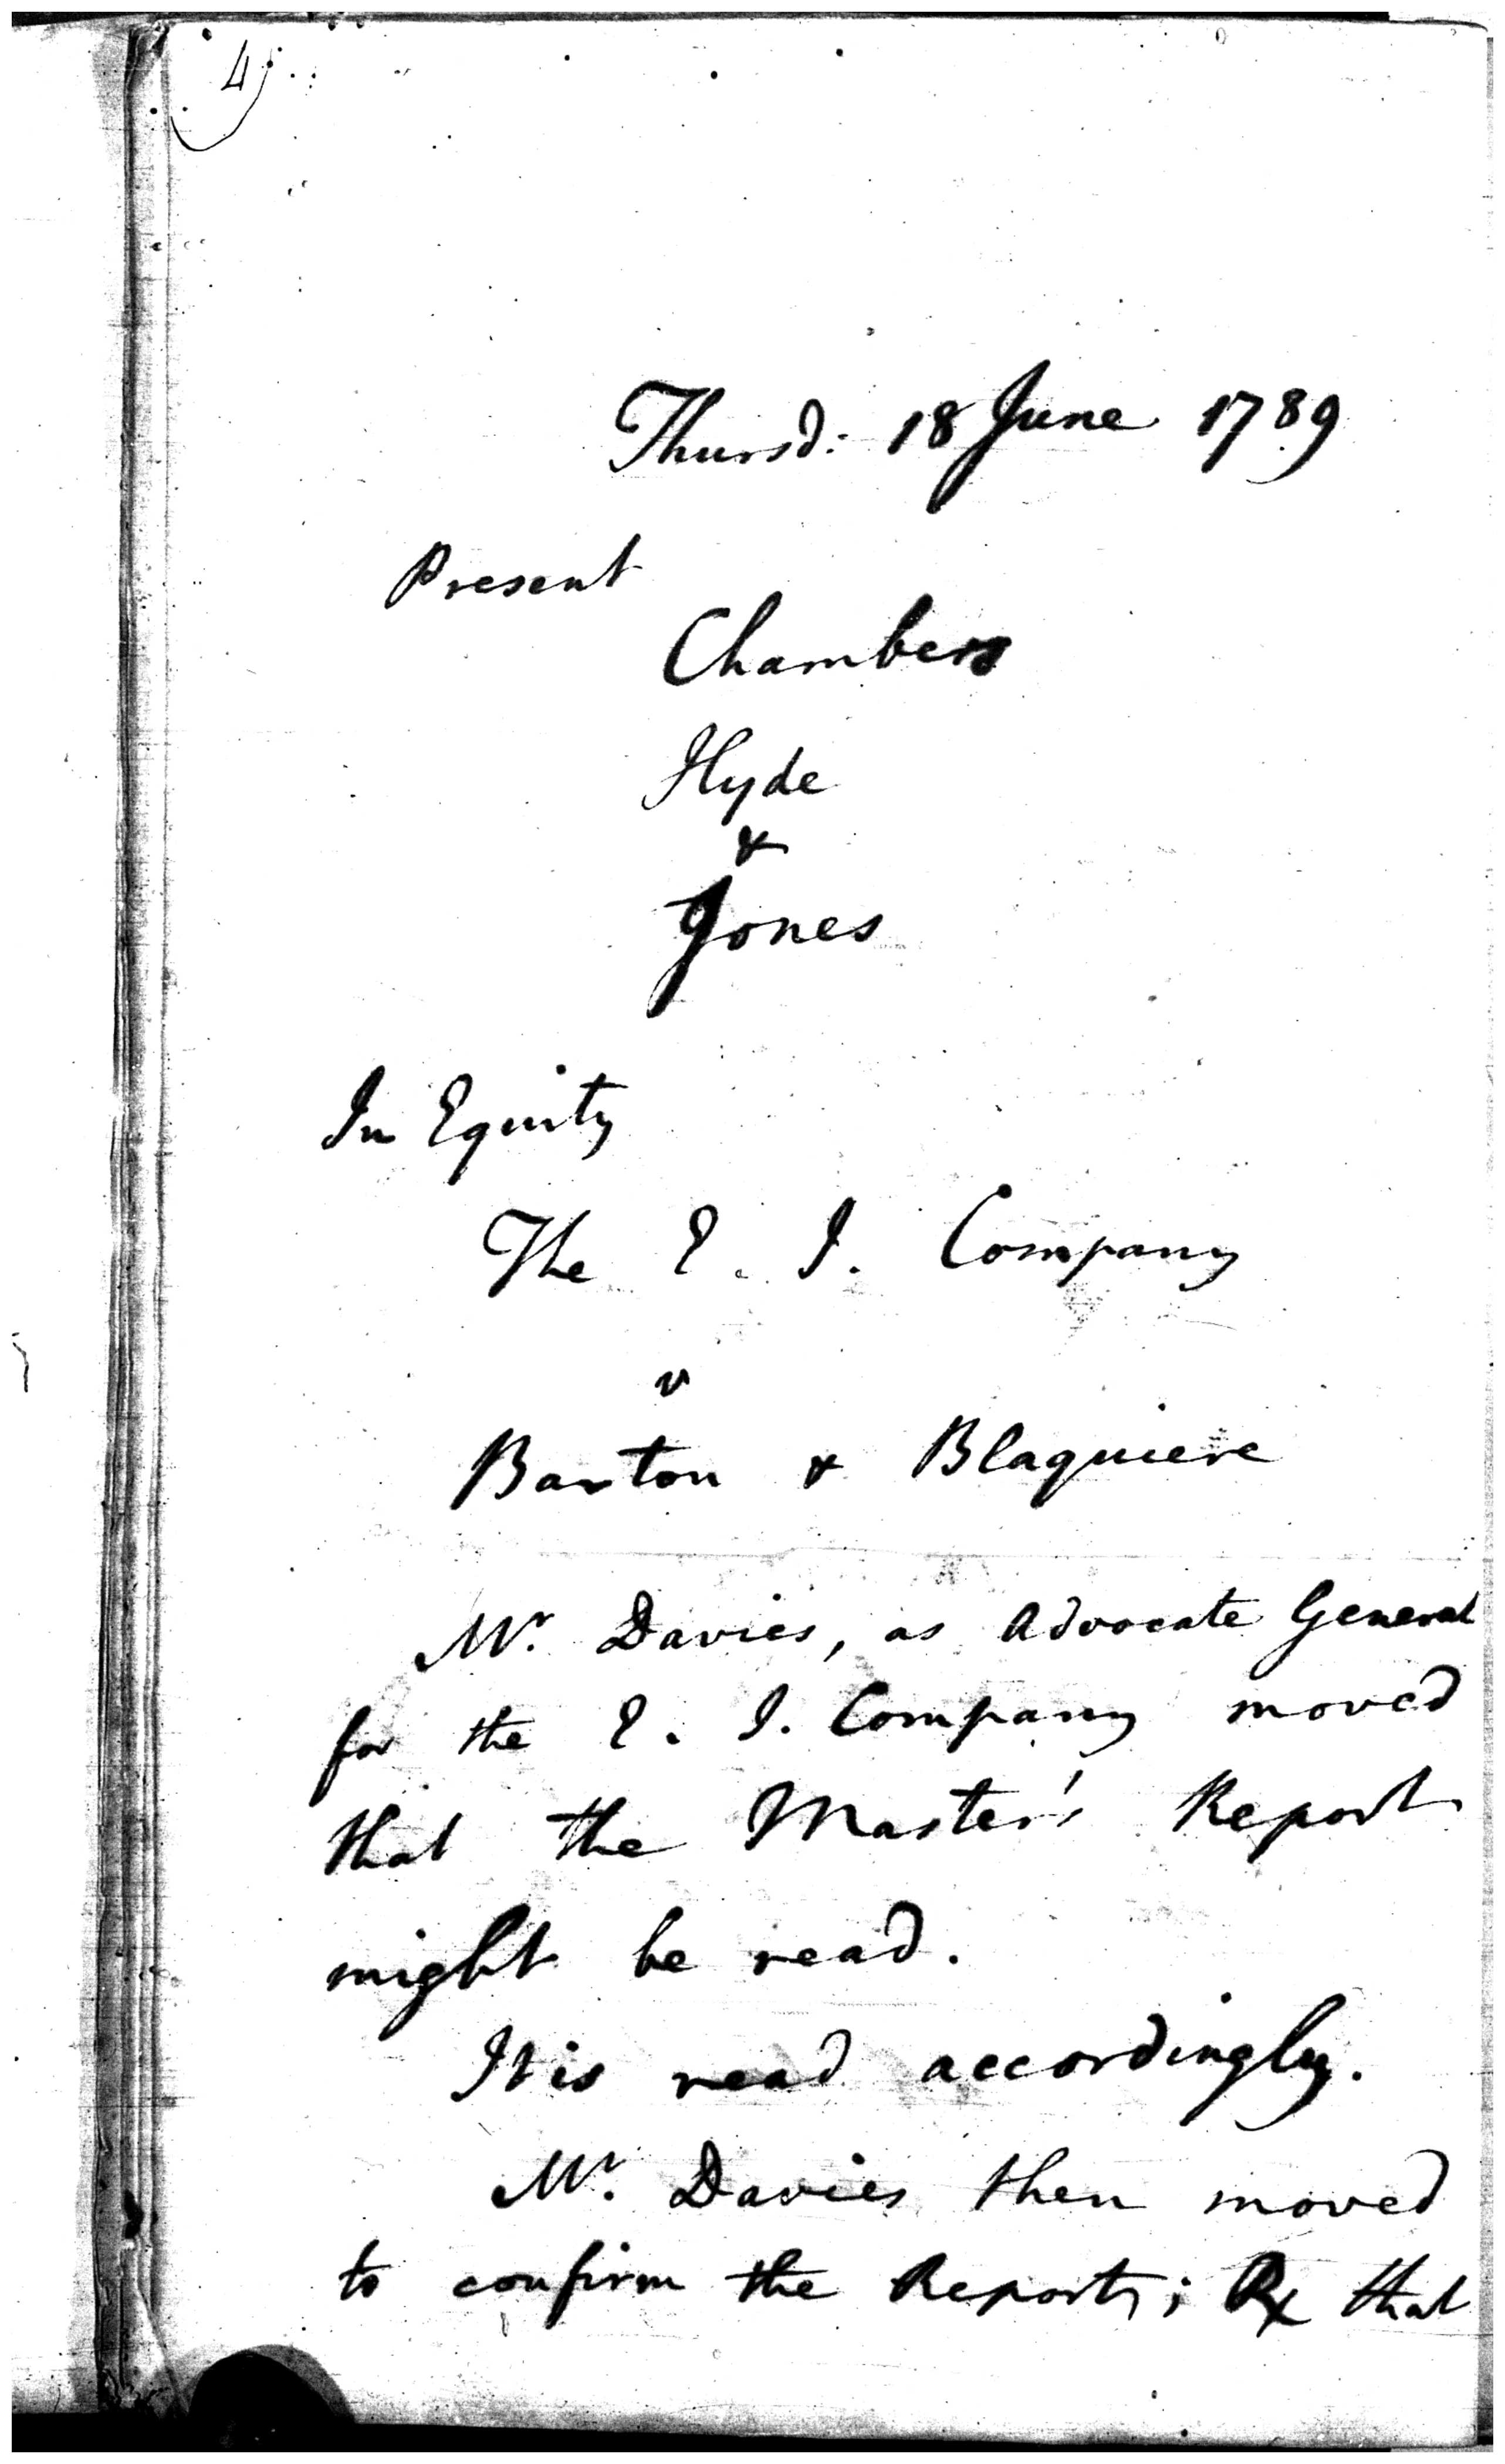 4
Thursd: 18 June 1789
Present
Chambers
Hyde
&
Jones
In Equity
The E. I. Company
v
Barton & Blaquiere
Mr. Davies, as Advocate General
for the E. I. Company moved
that the Master's Report
might be read.
It is read accordingly.
Mr. Davies then moved
to confirm the Report; & that